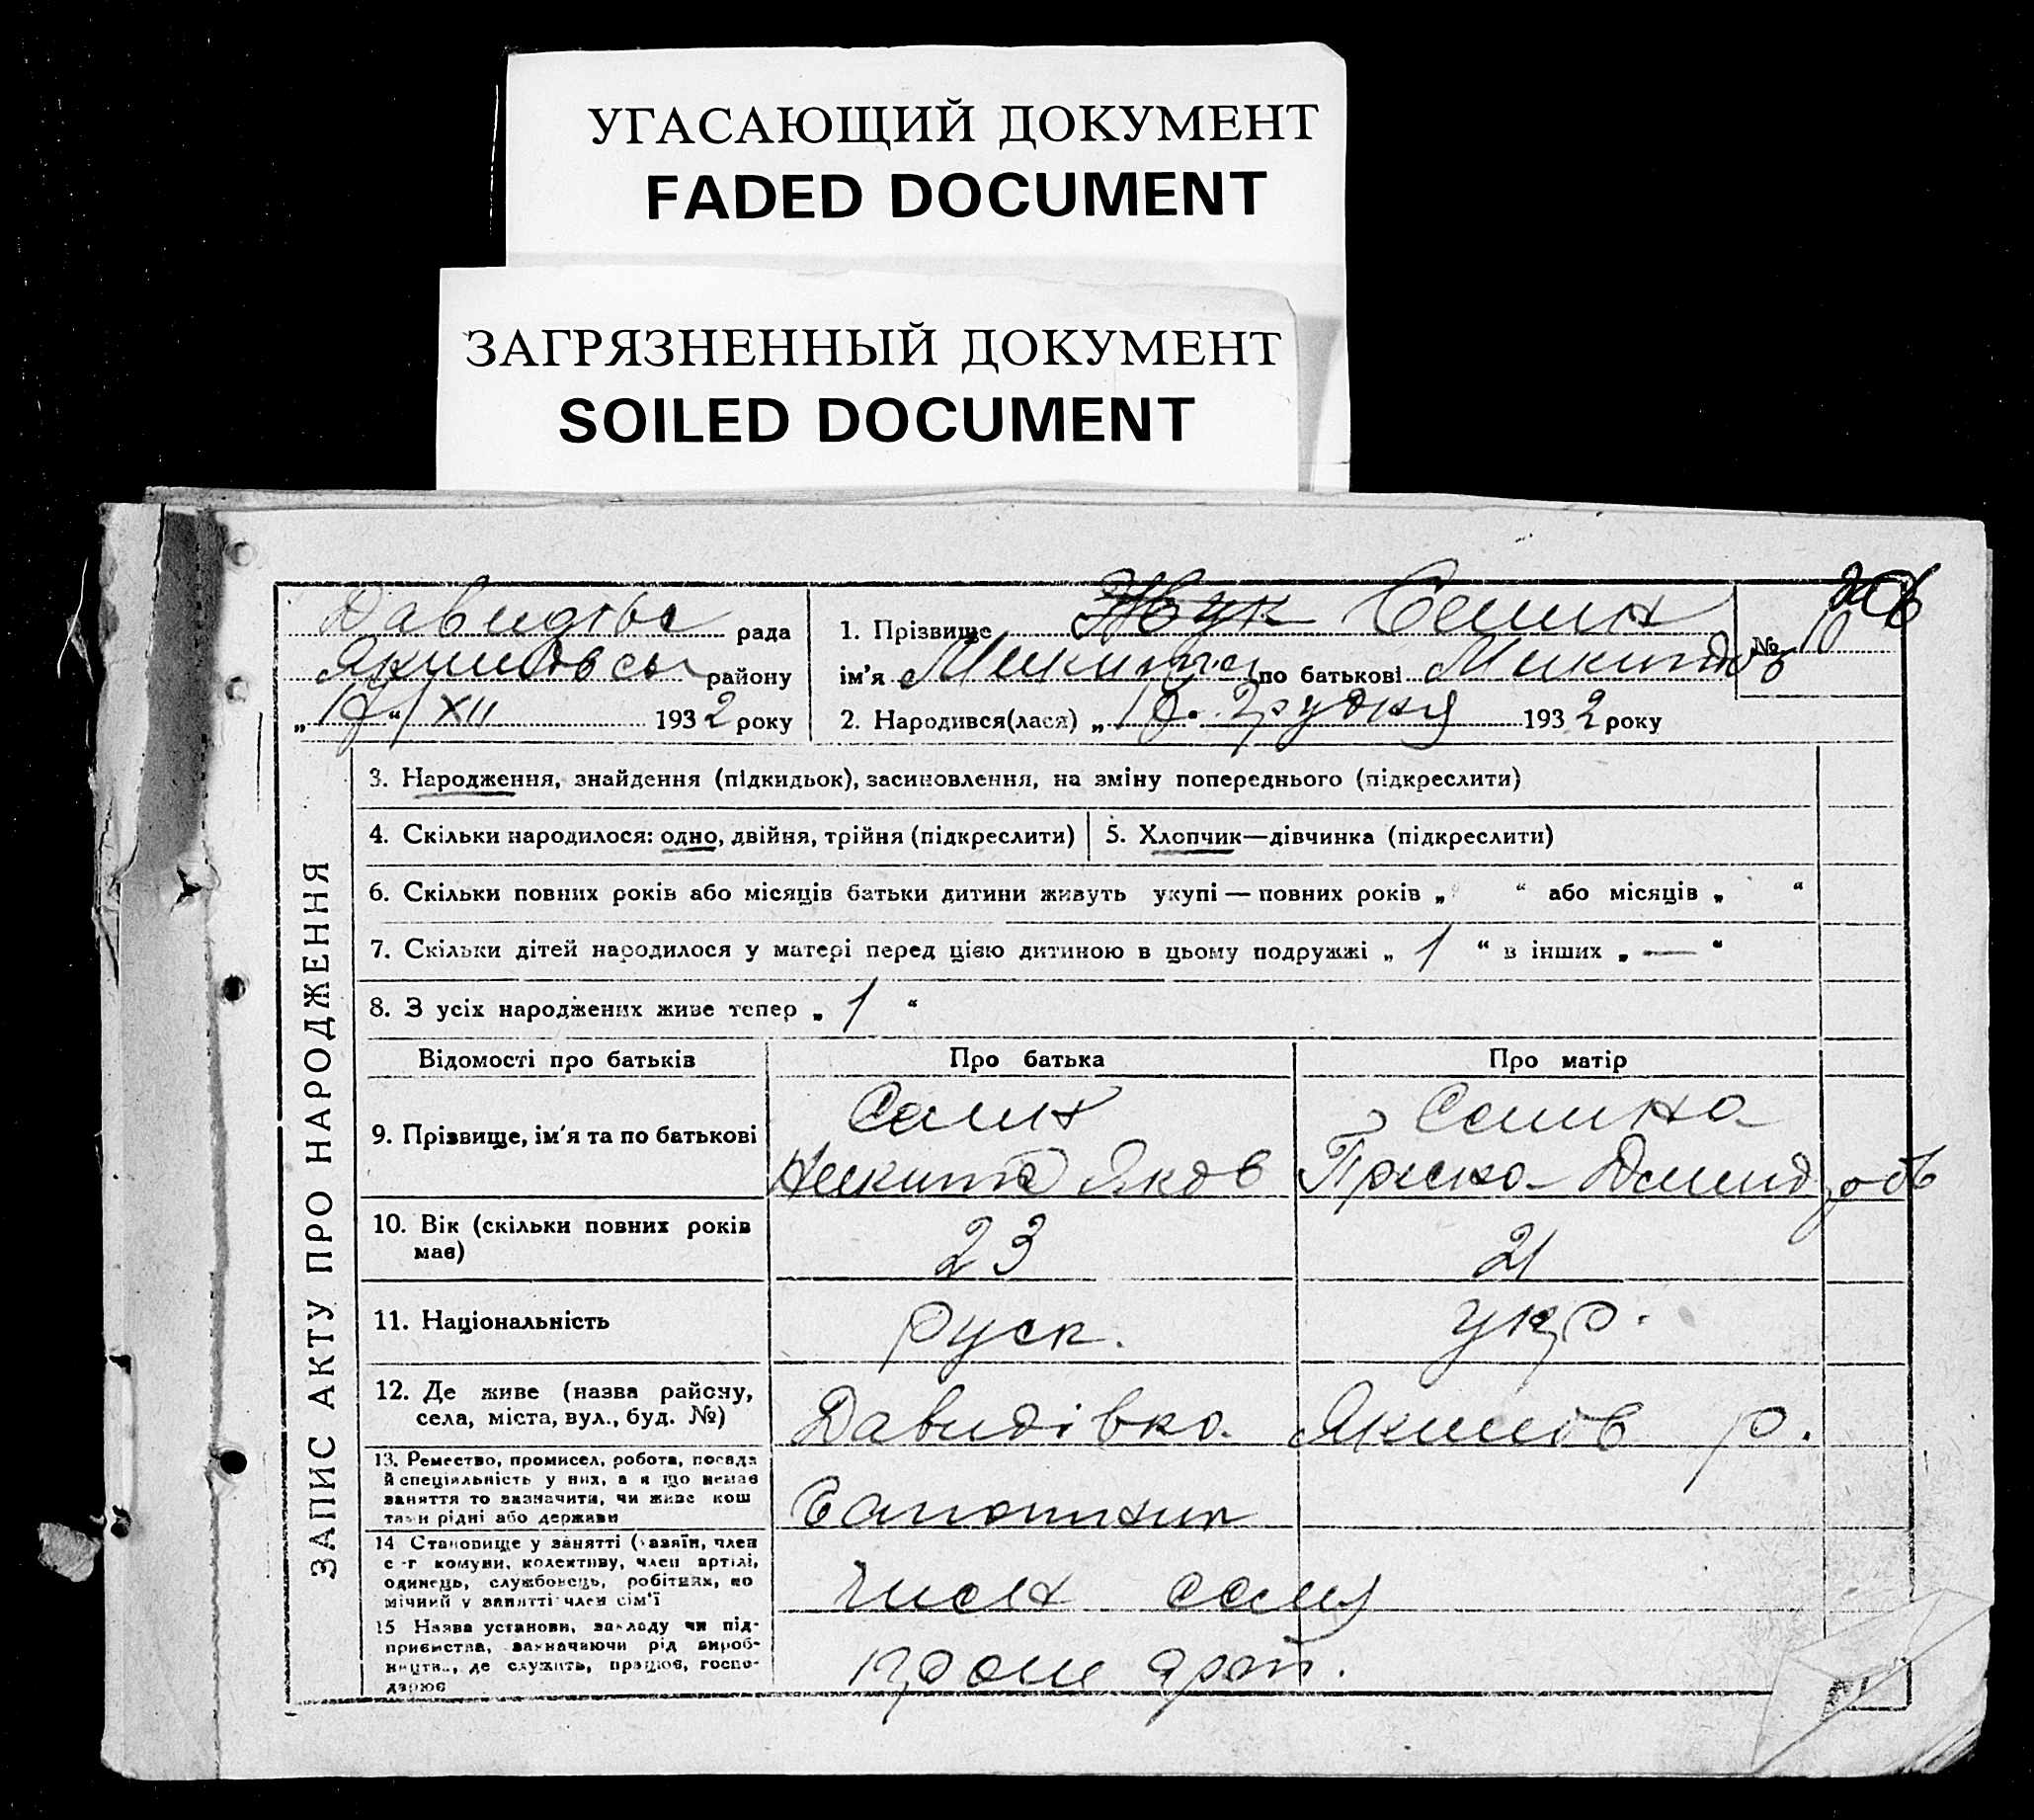 УГАСАЮЩИЙ ДОКУМЕНТ
FADED DOCUMENT
ЗАГРЯЗНЕННЫЙ ДОКУМЕНТ
SOILED DOCUMENT
ЗАПИС АКТУ ПРО НАРОДЖЕННЯ
Давидівс рада
Якимовськ району
„ “ XII 1932 року
1. Прізвище Жук Семин
№ 10
ім'я Микита по батькові Микитов
2. Народився(лася) „10. Грудня 1932 року
3. Народження, знайдення (підкидьок), засиновлення, на зміну попереднього (підкреслити)
4. Скільки народилося: одно, двійня, трійня (підкреслити)
5. Хлопчик—дівчинка (підкреслити)
6. Скільки повних років або місяців батьки дитини живуть укупі — повних років „ “ або місяців „ “
7. Скільки дітей народилося у матері перед цією дитиною в цьому подружжі „ 1 “ в інших „ — “
8. З усіх народжених живе тепер „ 1 “
Відомості про батьків
Про батька
Про матір
9. Прізвище, ім'я та по батькові
Никита Яков
Приська
10. Вік (скільки повних років має)
23
21
11. Національність
Руск.
укр.
12. Де живе (назва району, села, міста, вул., буд. №)
Давидівка. Якимов р.
13. Ремество, промисел, робота, посада
й спеціяльність у них, а я що немає
заняття то зазначити, чи живе кош
тами рідні або держави
14 Становище у занятті (хазяїн, член
с-г комуни, колективу, член артілі,
одинець, службовець, робітник, по
мічний у занятті член сім'ї
член
15 Назва установи, закладу чи під-
приємства, зазначаючи рід вироб-
ництва, де служить, працює, госпо-
дарює
пром арт.